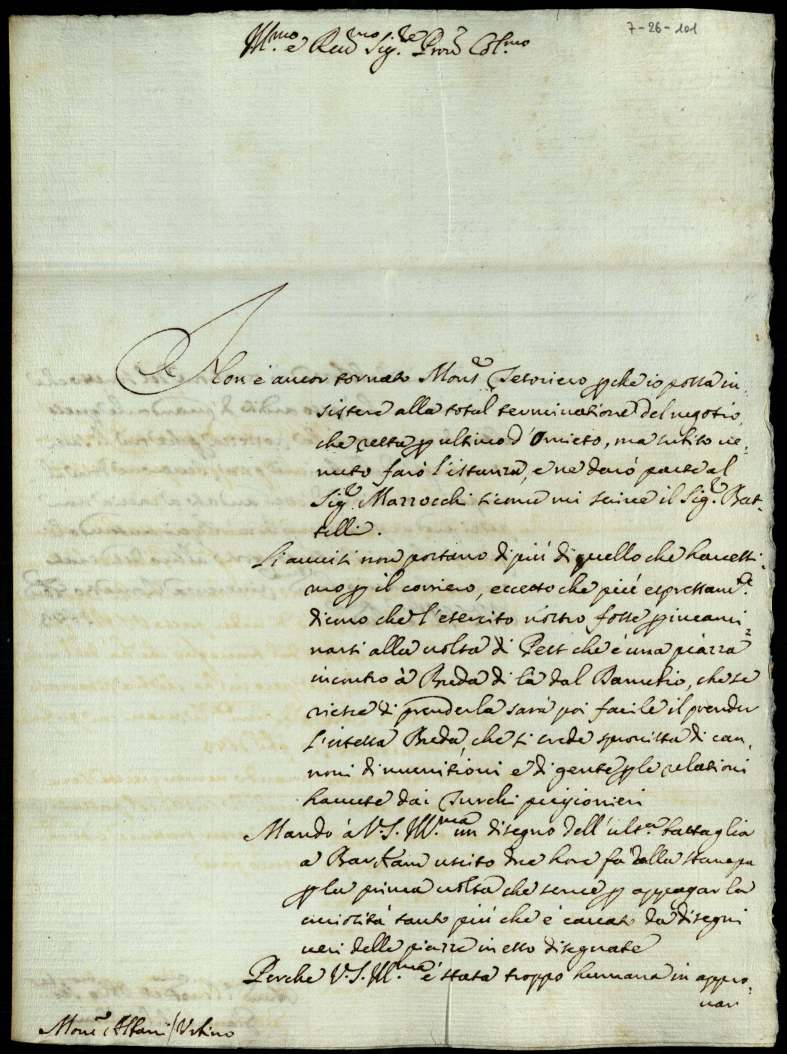 7-26-101
Ill.mo e Reu.mo Sig.re Pron Col.mo
Non è ancor tornato Mons.r Tesoriero pche io possa in-
sistere alla total terminatione del negotio,
che resta p ultimo d'Omicto, ma subito ve-
nuto farò l'istanza, e ne darò parte al
Sig.r Marzocchi sicome mi scriue il Sig.r Bat-
telli.
Li auuisi non portano di più di quello che hauessi-
mo p il corriero, eccetto che più espressam.te
dicono che l'esercito nostro fosse p incami-
narsi alla uolta di Pest che è una piazza
incontro à Breda di là dal Danubio, che se
riesce di prenderla sarà poi facile il prender
l'istessa Breda, che si crede sprouista di can-
noni di munitioni e di gente p le relationi
hauute dai Turchi prigionieri
Mando à V.S. Ill.ma un disegno dell'ult.a battaglia
a Barkam uscito due hore fà dalla stampa
p la prima uolta che serue p appagar la
curiosità tanto più che è cauato da disegni
ueri delle piazze in esso disegnate
Perche V.S. Ill.ma è stata troppo humana in appro-
uar
Mons.r Albani / Urbino